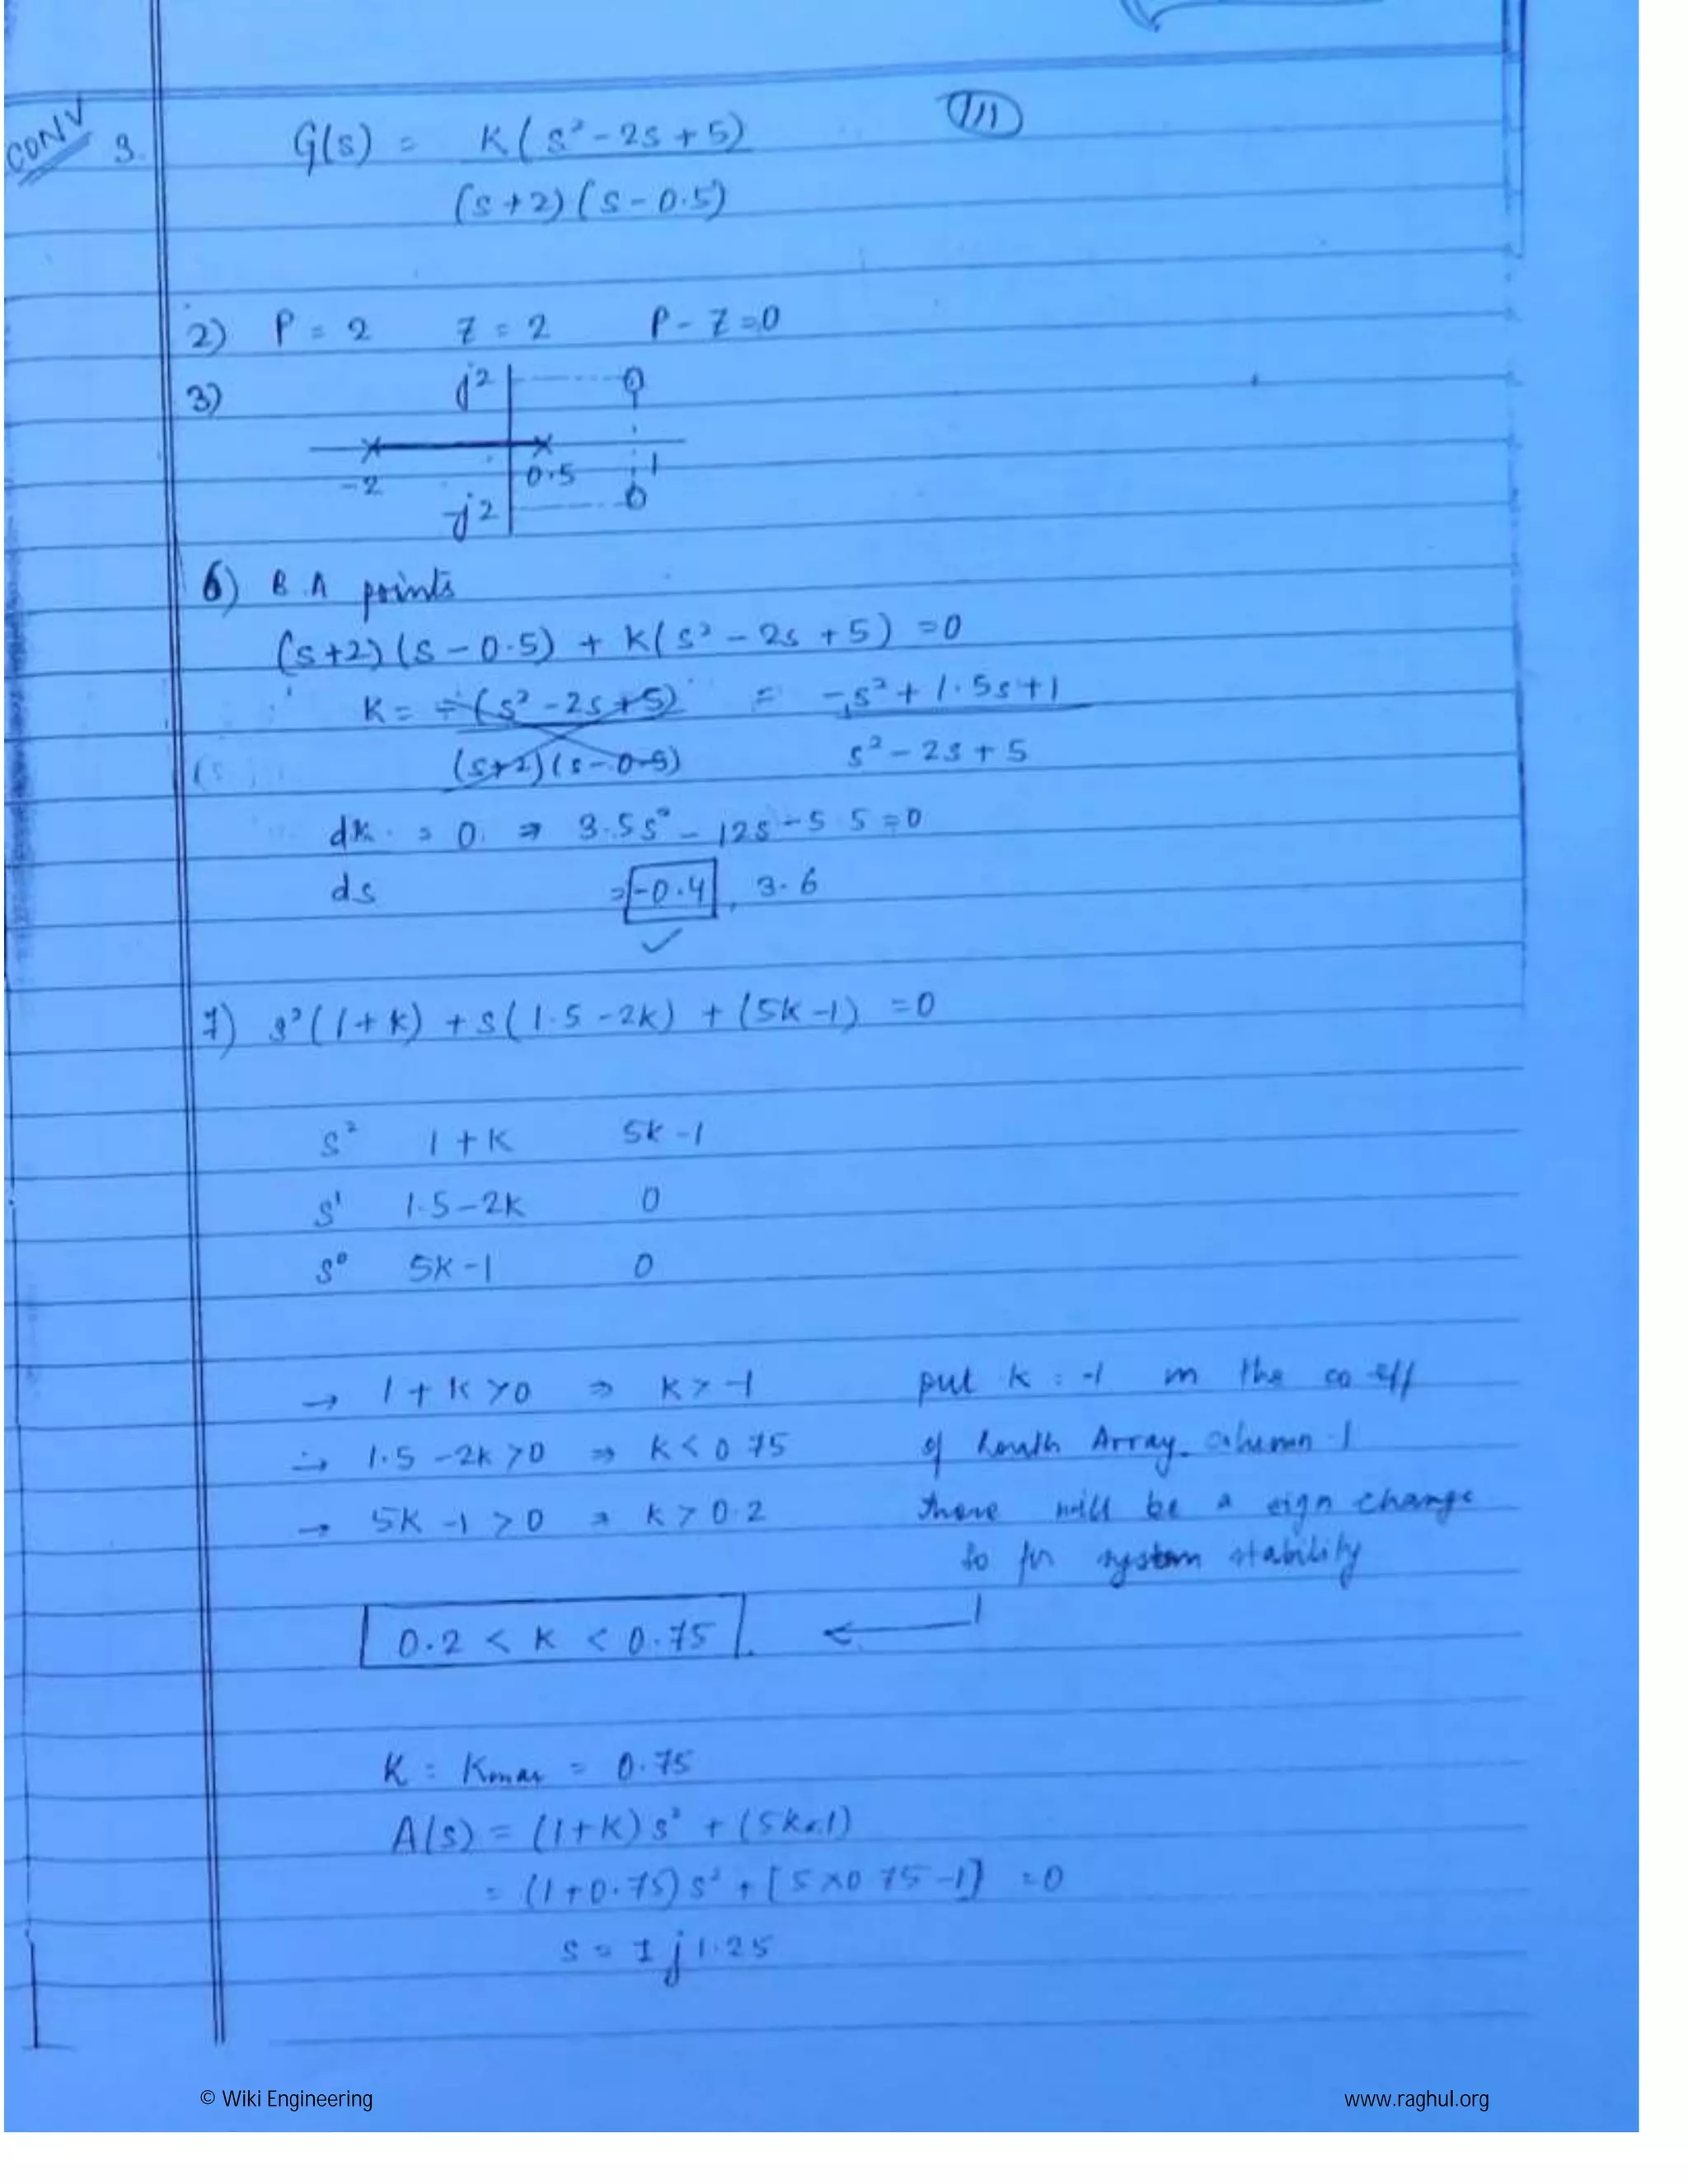 CONV 3. G(s) = K(s² - 2s + 5)
(s+2)(s - 0.5)
2) P = 2 Z = 2 P - Z = 0
3) j2
-2 0.5 1
-j2
6) B.A points
(s+2)(s - 0.5) + K(s² - 2s + 5) = 0
K = -(s² - 2s + 5) = -s² + 1.5s + 1
(s+2)(s - 0.5) s² - 2s + 5
dK = 0 ⇒ 3.5s² - 12s - 5.5 = 0
ds = -0.4, 3.6
7) s²(1+K) + s(1.5 - 2K) + (5K - 1) = 0
s² 1+K 5K-1
s¹ 1.5-2K 0
s⁰ 5K-1 0
→ 1+K>0 ⇒ K>-1 put K = -1 in the co-eff
→ 1.5-2K>0 ⇒ K<0.75 of Routh Array column-1
→ 5K-1>0 ⇒ K>0.2 there will be a sign change
so for system stability
0.2 < K < 0.75
K = Kmax = 0.75
A(s) = (1+K)s² + (5K-1)
= (1+0.75)s² + [5×0.75-1] = 0
s = ± j1.25
© Wiki Engineering www.raghul.org